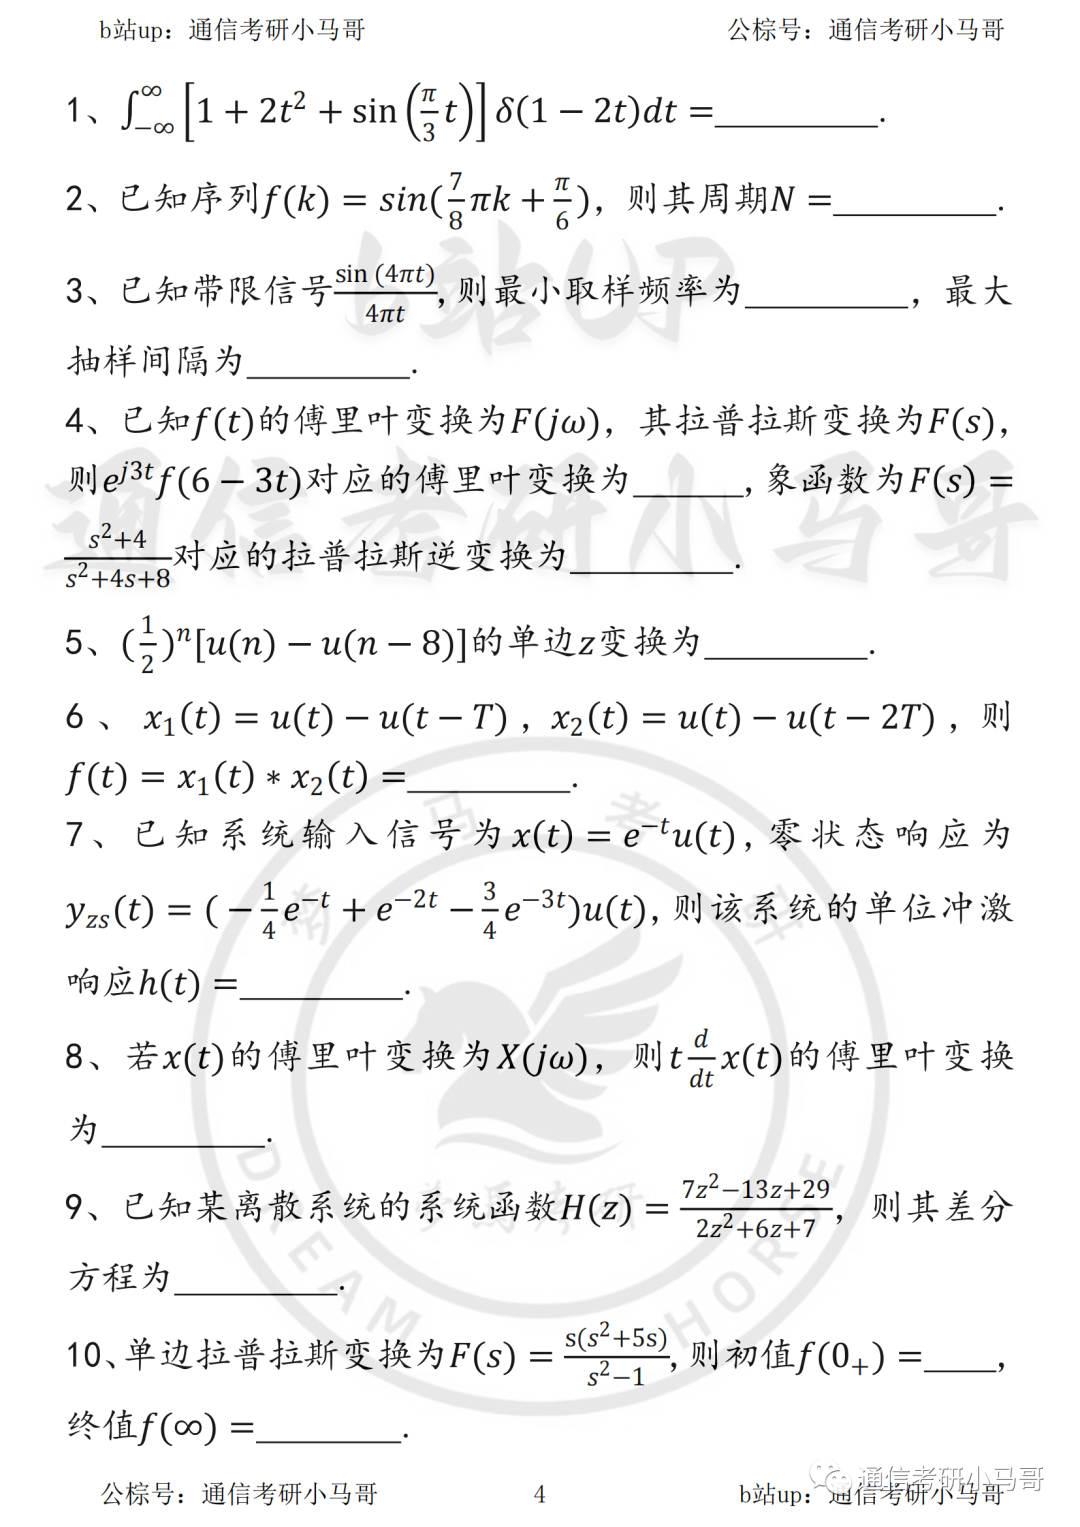 b站up：通信考研小马哥 公棕号：通信考研小马哥
1、∫_{-∞}^{∞}[1 + 2t² + sin(π/3 t)] δ(1 − 2t)dt =_________.
2、已知序列f(k) = sin(7/8 πk + π/6)，则其周期N =_________.
3、已知带限信号sin (4πt)/4πt,则最小取样频率为_________，最大
抽样间隔为_________.
4、已知f(t)的傅里叶变换为F(jω)，其拉普拉斯变换为F(s)，
则e^{j3t}f(6 − 3t)对应的傅里叶变换为______,象函数为F(s) =
s²+4/s²+4s+8对应的拉普拉斯逆变换为_________.
5、(1/2)ⁿ[u(n) − u(n − 8)]的单边z变换为_________.
6、x₁(t) = u(t) − u(t − T)，x₂(t) = u(t) − u(t − 2T)，则
f(t) = x₁(t) ∗ x₂(t) =_________.
7、已知系统输入信号为x(t) = e^{−t}u(t),零状态响应为
y_{zs}(t) = (−1/4 e^{−t} + e^{−2t} − 3/4 e^{−3t})u(t),则该系统的单位冲激
响应h(t) =_________.
8、若x(t)的傅里叶变换为X(jω)，则t d/dt x(t)的傅里叶变换
为_________.
9、已知某离散系统的系统函数H(z) = 7z²−13z+29/2z²+6z+7，则其差分
方程为_________.
10、单边拉普拉斯变换为F(s) = s(s²+5s)/s²−1,则初值f(0₊) =____,
终值f(∞) =________.
公棕号：通信考研小马哥 4 b站up：通信考研小马哥
通信考研小马哥
b站UP
通信考研小马哥
梦马考研
DREAM HORSE